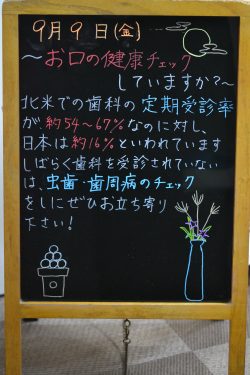 9月9日(金)
～お口の健康チェック
していますか?～
北米での歯科の定期受診率
が、約54～67%なのに対し、
日本は約16%といわれています
しばらく歯科を受診されていない
は、虫歯・歯周病のチェック
をしにぜひお立ち寄り
下さい!